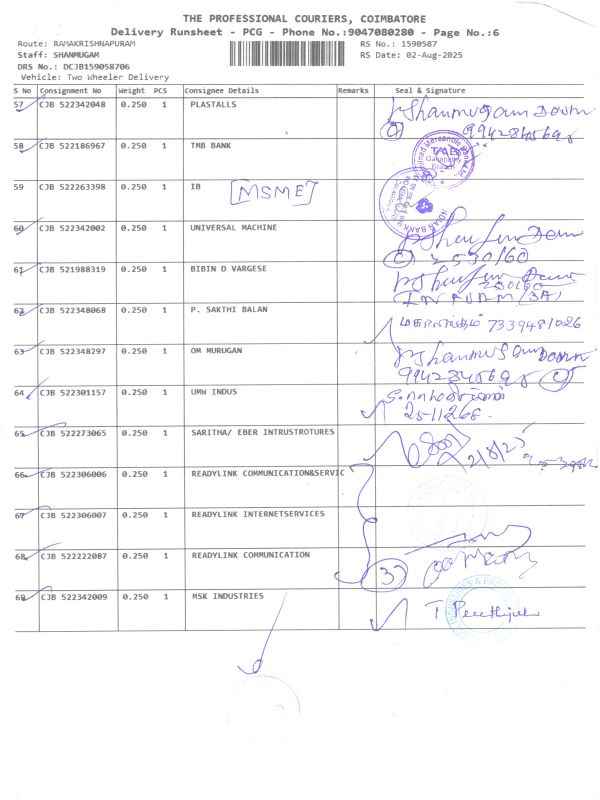 THE PROFESSIONAL COURIERS, COIMBATORE
Delivery Runsheet - PCG - Phone No.:9047080280 - Page No.:6
Route: RAMAKRISHNAPURAM RS No.: 1590587
Staff: SHANMUGAM RS Date: 02-Aug-2025
DRS No.: DCJB159058706
Vehicle: Two Wheeler Delivery
S No Consignment No Weight PCS Consignee Details Remarks Seal & Signature
57 CJB 522342048 0.250 1 PLASTALLS
58 CJB 522186967 0.250 1 TMB BANK
59 CJB 522263398 0.250 1 IB [MSME]
60 CJB 522342002 0.250 1 UNIVERSAL MACHINE
61 CJB 521988319 0.250 1 BIBIN D VARGESE
62 CJB 522348068 0.250 1 P. SAKTHI BALAN 7339481026
63 CJB 522348297 0.250 1 OM MURUGAN
64 CJB 522301157 0.250 1 UMW INDUS 2511268
65 CJB 522273065 0.250 1 SARITHA/ EBER INTRUSTROTURES 2/8/25
66 CJB 522306006 0.250 1 READYLINK COMMUNICATION&SERVIC
67 CJB 522306007 0.250 1 READYLINK INTERNETSERVICES
68 CJB 522222087 0.250 1 READYLINK COMMUNICATION 3
69 CJB 522342009 0.250 1 MSK INDUSTRIES